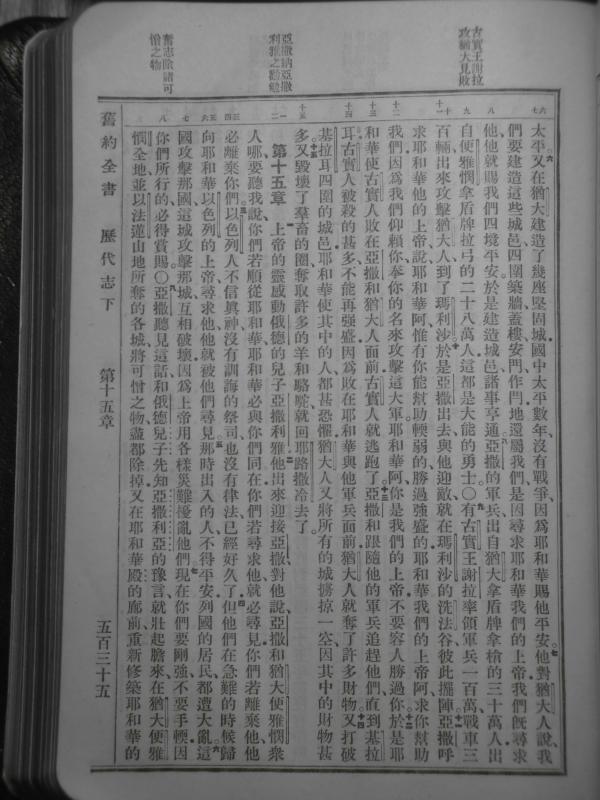 古實王謝拉
攻猶大見敗
亞撒納亞撒
利雅之勸勉
奮志除諸可
憎之物
太平又在猶大建造了幾座堅固城國中太平數年沒有戰爭因爲耶和華賜他平安他對猶大人說我
們要建造這些城邑四圍築牆蓋樓安門作閂地還屬我們是因尋求耶和華我們的上帝我們旣尋求
他他就賜我們四境平安於是建造城邑諸事亨通亞撒的軍兵出自猶大拿盾牌拿槍的三十萬人出
自便雅憫拿盾牌拉弓的二十八萬人這都是大能的勇士〇有古實王謝拉率領軍兵一百萬戰車三
百輛出來攻擊猶大人到了瑪利沙於是亞撒出去與他迎敵就在瑪利沙的洗法谷彼此擺陣亞撒呼
求耶和華他的上帝說耶和華阿惟有你能幫助輭弱的勝過強盛的耶和華我們的上帝阿求你幫助
我們因爲我們仰賴你奉你的名來攻擊這大軍耶和華阿你是我們的上帝不要容人勝過你於是耶
和華使古實人敗在亞撒和猶大人面前古實人就逃跑了亞撒和跟隨他的軍兵追趕他們直到基拉
耳古實人被殺的甚多不能再強盛因爲敗在耶和華與他軍兵面前猶大人就奪了許多財物又打破
基拉耳四圍的城邑耶和華使其中的人都甚恐懼猶大人又將所有的城擄掠一空因其中的財物甚
多又毀壞了羣畜的圈奪取許多的羊和駱駝就回耶路撒冷去了
第十五章 上帝的靈感動俄德的兒子亞撒利雅他出來迎接亞撒對他說亞撒和猶大便雅憫衆
人哪要聽我說你們若順從耶和華耶和華必與你們同在你們若尋求他就必尋見你們若離棄他他
必離棄你們以色列人不信眞神沒有訓誨的祭司也沒有律法已經好久了但他們在急難的時候歸
向耶和華以色列的上帝尋求他他就被他們尋見那時出入的人不得平安列國的居民都遭大亂這
國攻擊那國這城攻擊那城互相破壞因爲上帝用各樣災難擾亂他們現在你們要剛強不要手輭因
你們所行的必得賞賜〇亞撒聽見這話和俄德兒子先知亞撒利亞的豫言就壯起膽來在猶大便雅
憫全地並以法蓮山地所奪的各城將可憎之物盡都除掉又在耶和華殿的廊前重新修築耶和華的
舊約全書 歷代志下 第十五章 五百三十五